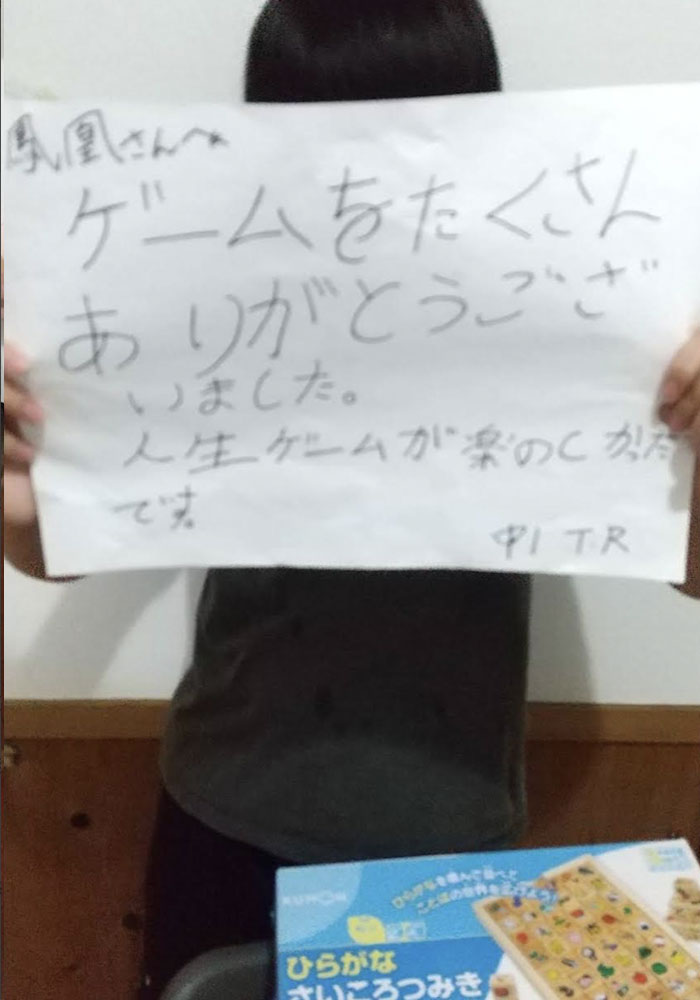 鳳凰さんへ
ゲームをたくさん
ありがとうござ
いました。
人生ゲームが楽のしかった
です。
中1 T.R
KUMON
ひらがなを並んで並べて
ことばの世界を広げよう!
ひらがな
さいころつみき